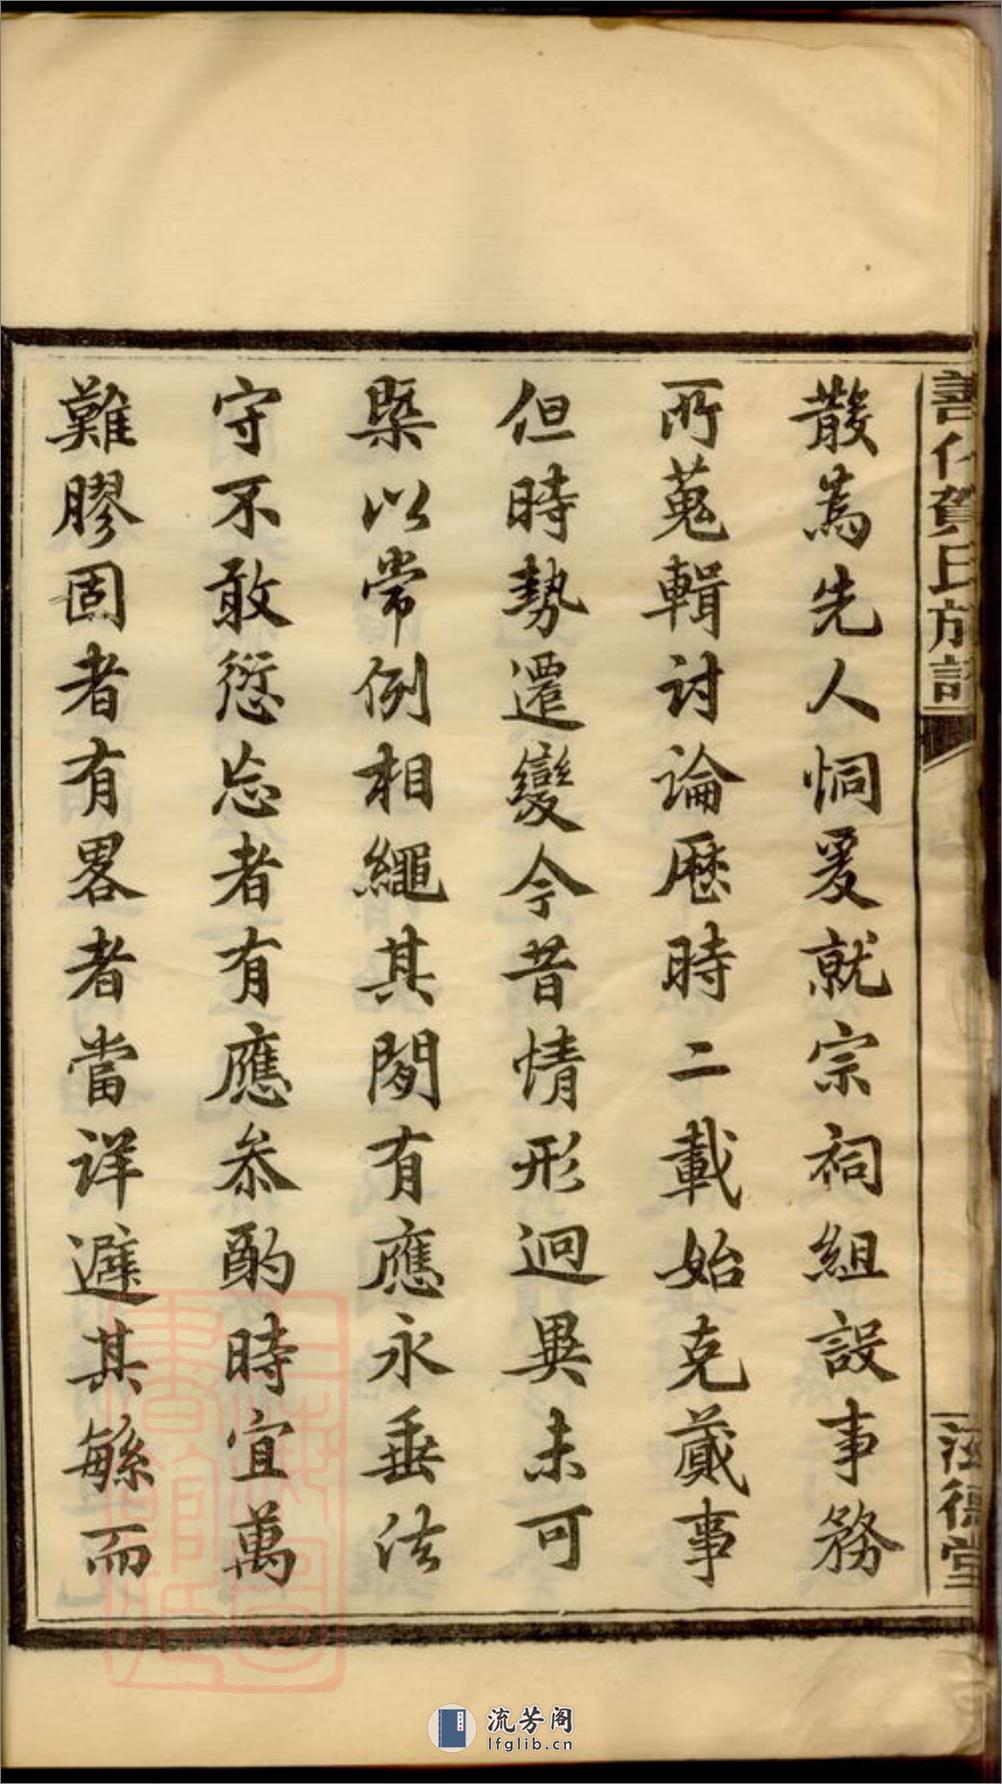 善化賀氏族譜
德堂
散為先人恫爰就宗祠組設事務
所蒐輯討論歷時二載始克蕆事
但時勢遷變今昔情形迥異未可
槩以常例相繩其間有應永垂法
守不敢愆忘者有應叅酌時宜萬
難膠固者有畧者當详避其緐而
上海圖書館藏
流芳阁
lfglib.cn